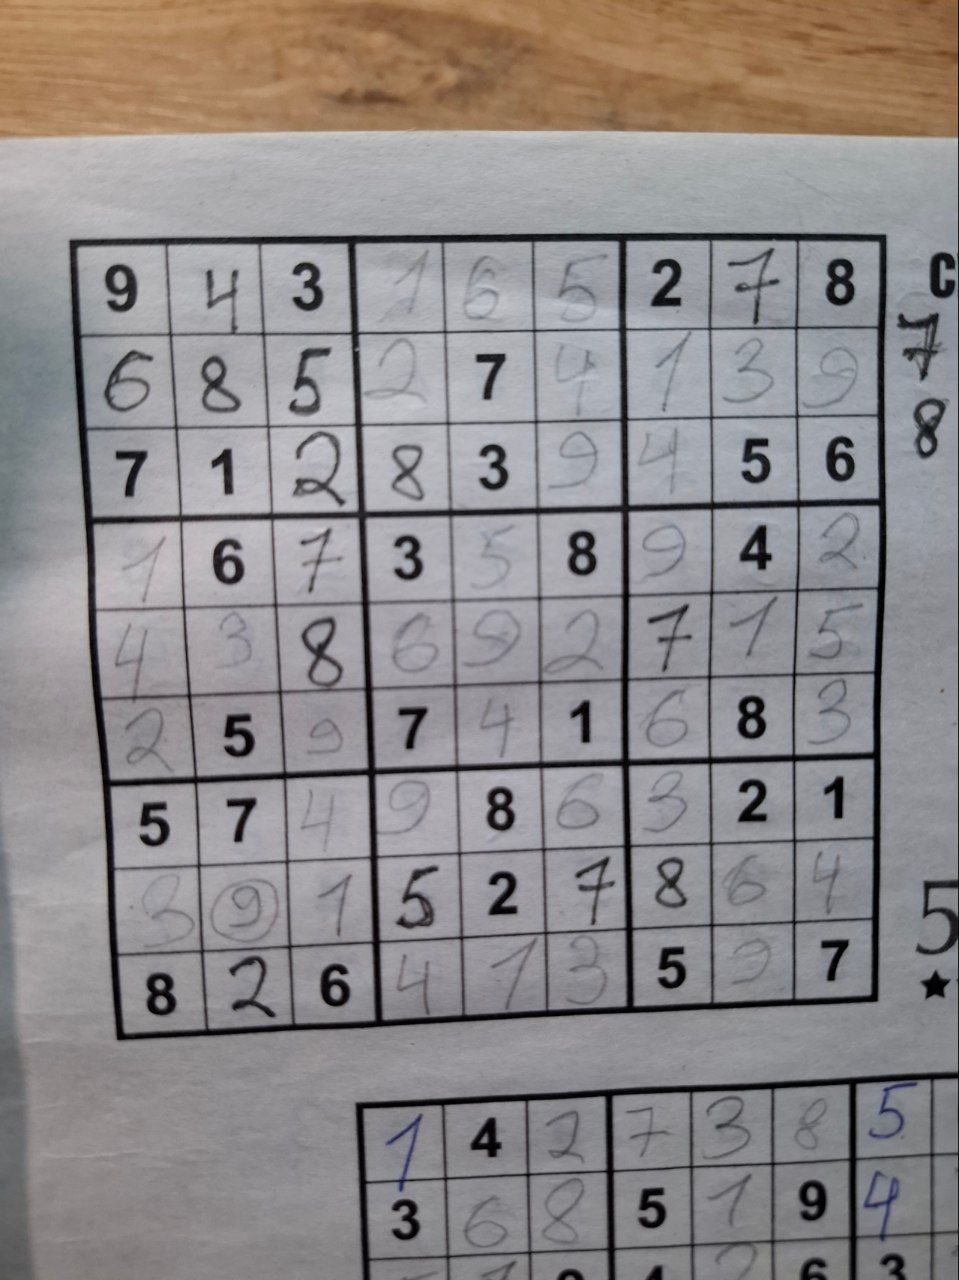 9 4 3 1 6 5 2 7 8 C
6 8 5 2 7 4 1 3 9 7
7 1 2 8 3 9 4 5 6 8
1 6 7 3 5 8 9 4 2
4 3 8 6 9 2 7 1 5
2 5 9 7 4 1 6 8 3
5 7 4 9 8 6 3 2 1
3 9 1 5 2 7 8 6 4 5
8 2 6 4 1 3 5 9 7 ★
1 4 2 7 3 8 5
3 6 8 5 1 9 4